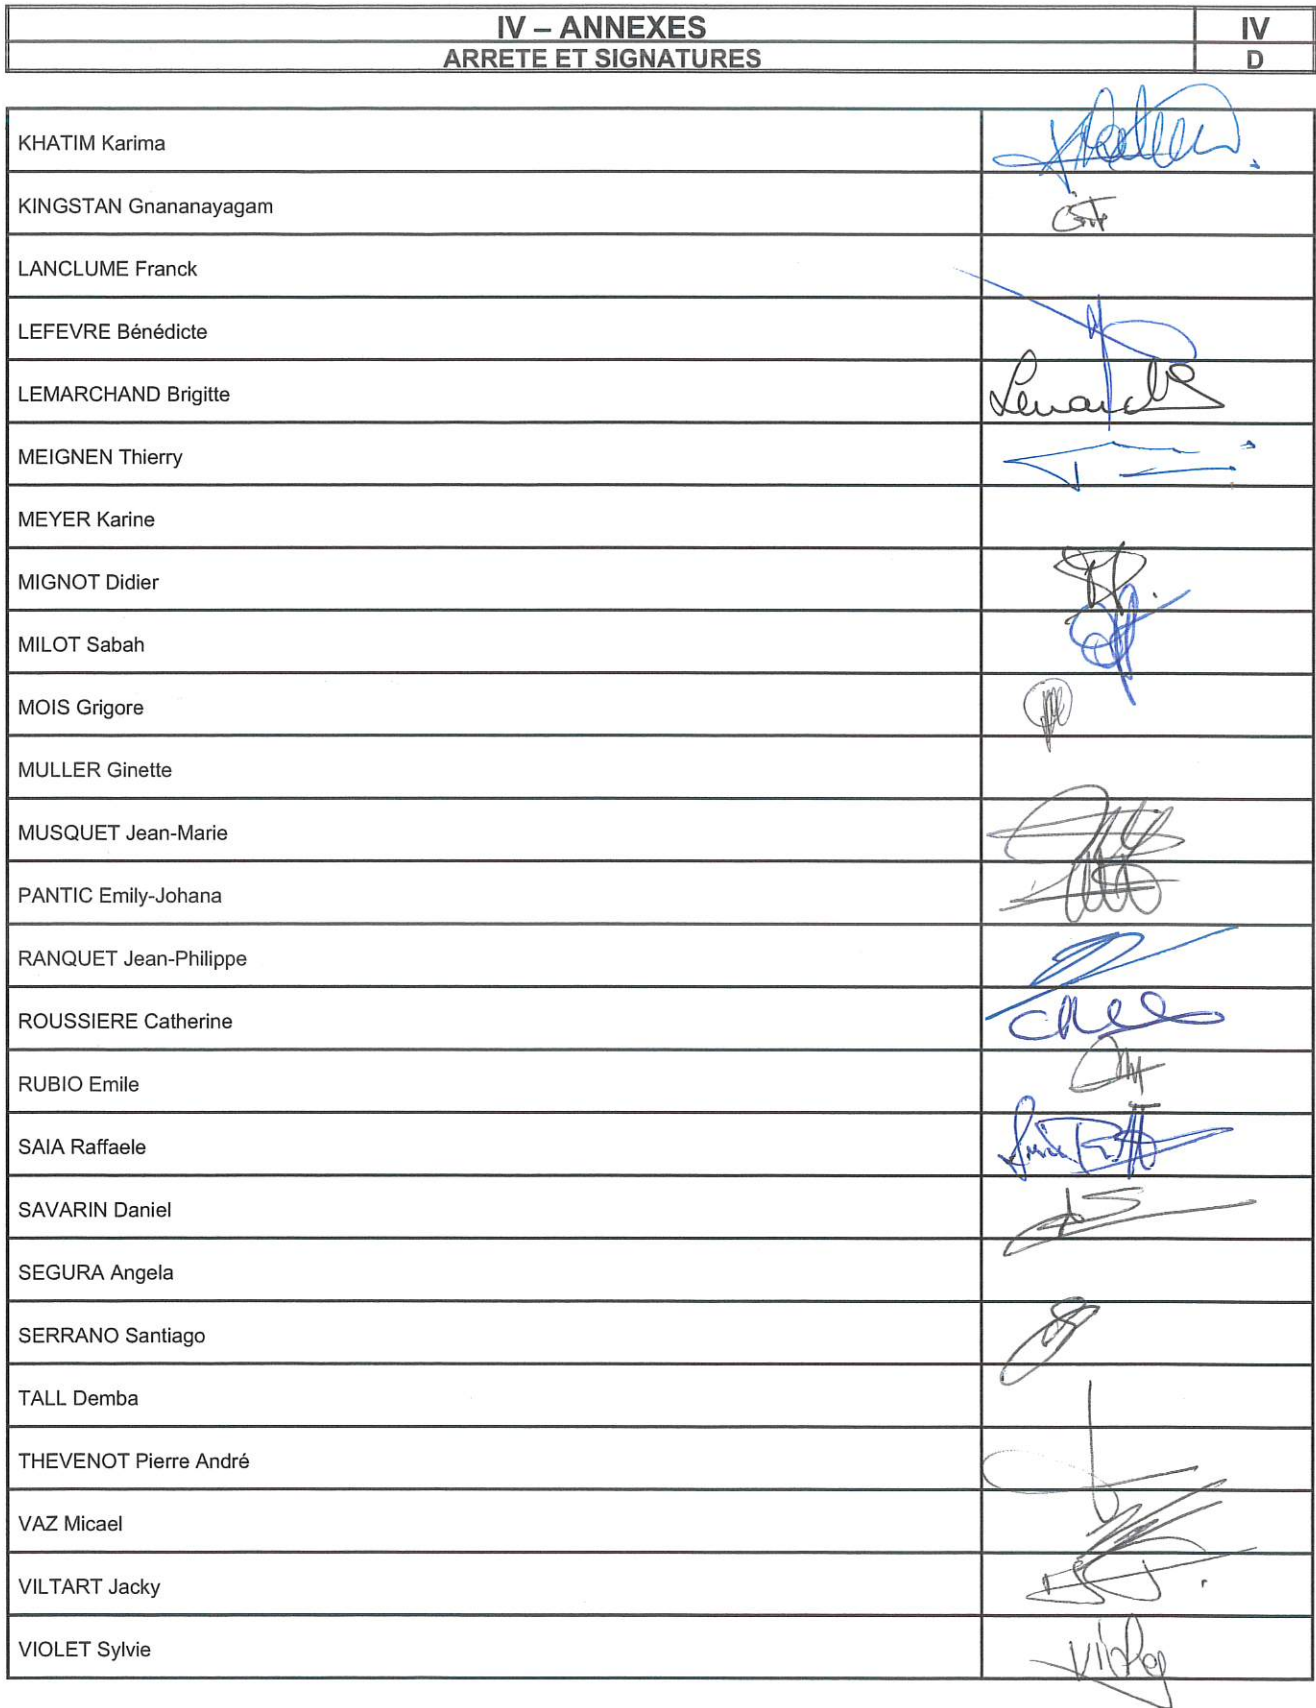 IV – ANNEXES
IV
ARRETE ET SIGNATURES
D
KHATIM Karima
KINGSTAN Gnananayagam
LANCLUME Franck
LEFEVRE Bénédicte
LEMARCHAND Brigitte
MEIGNEN Thierry
MEYER Karine
MIGNOT Didier
MILOT Sabah
MOIS Grigore
MULLER Ginette
MUSQUET Jean-Marie
PANTIC Emily-Johana
RANQUET Jean-Philippe
ROUSSIERE Catherine
RUBIO Emile
SAIA Raffaele
SAVARIN Daniel
SEGURA Angela
SERRANO Santiago
TALL Demba
THEVENOT Pierre André
VAZ Micael
VILTART Jacky
VIOLET Sylvie